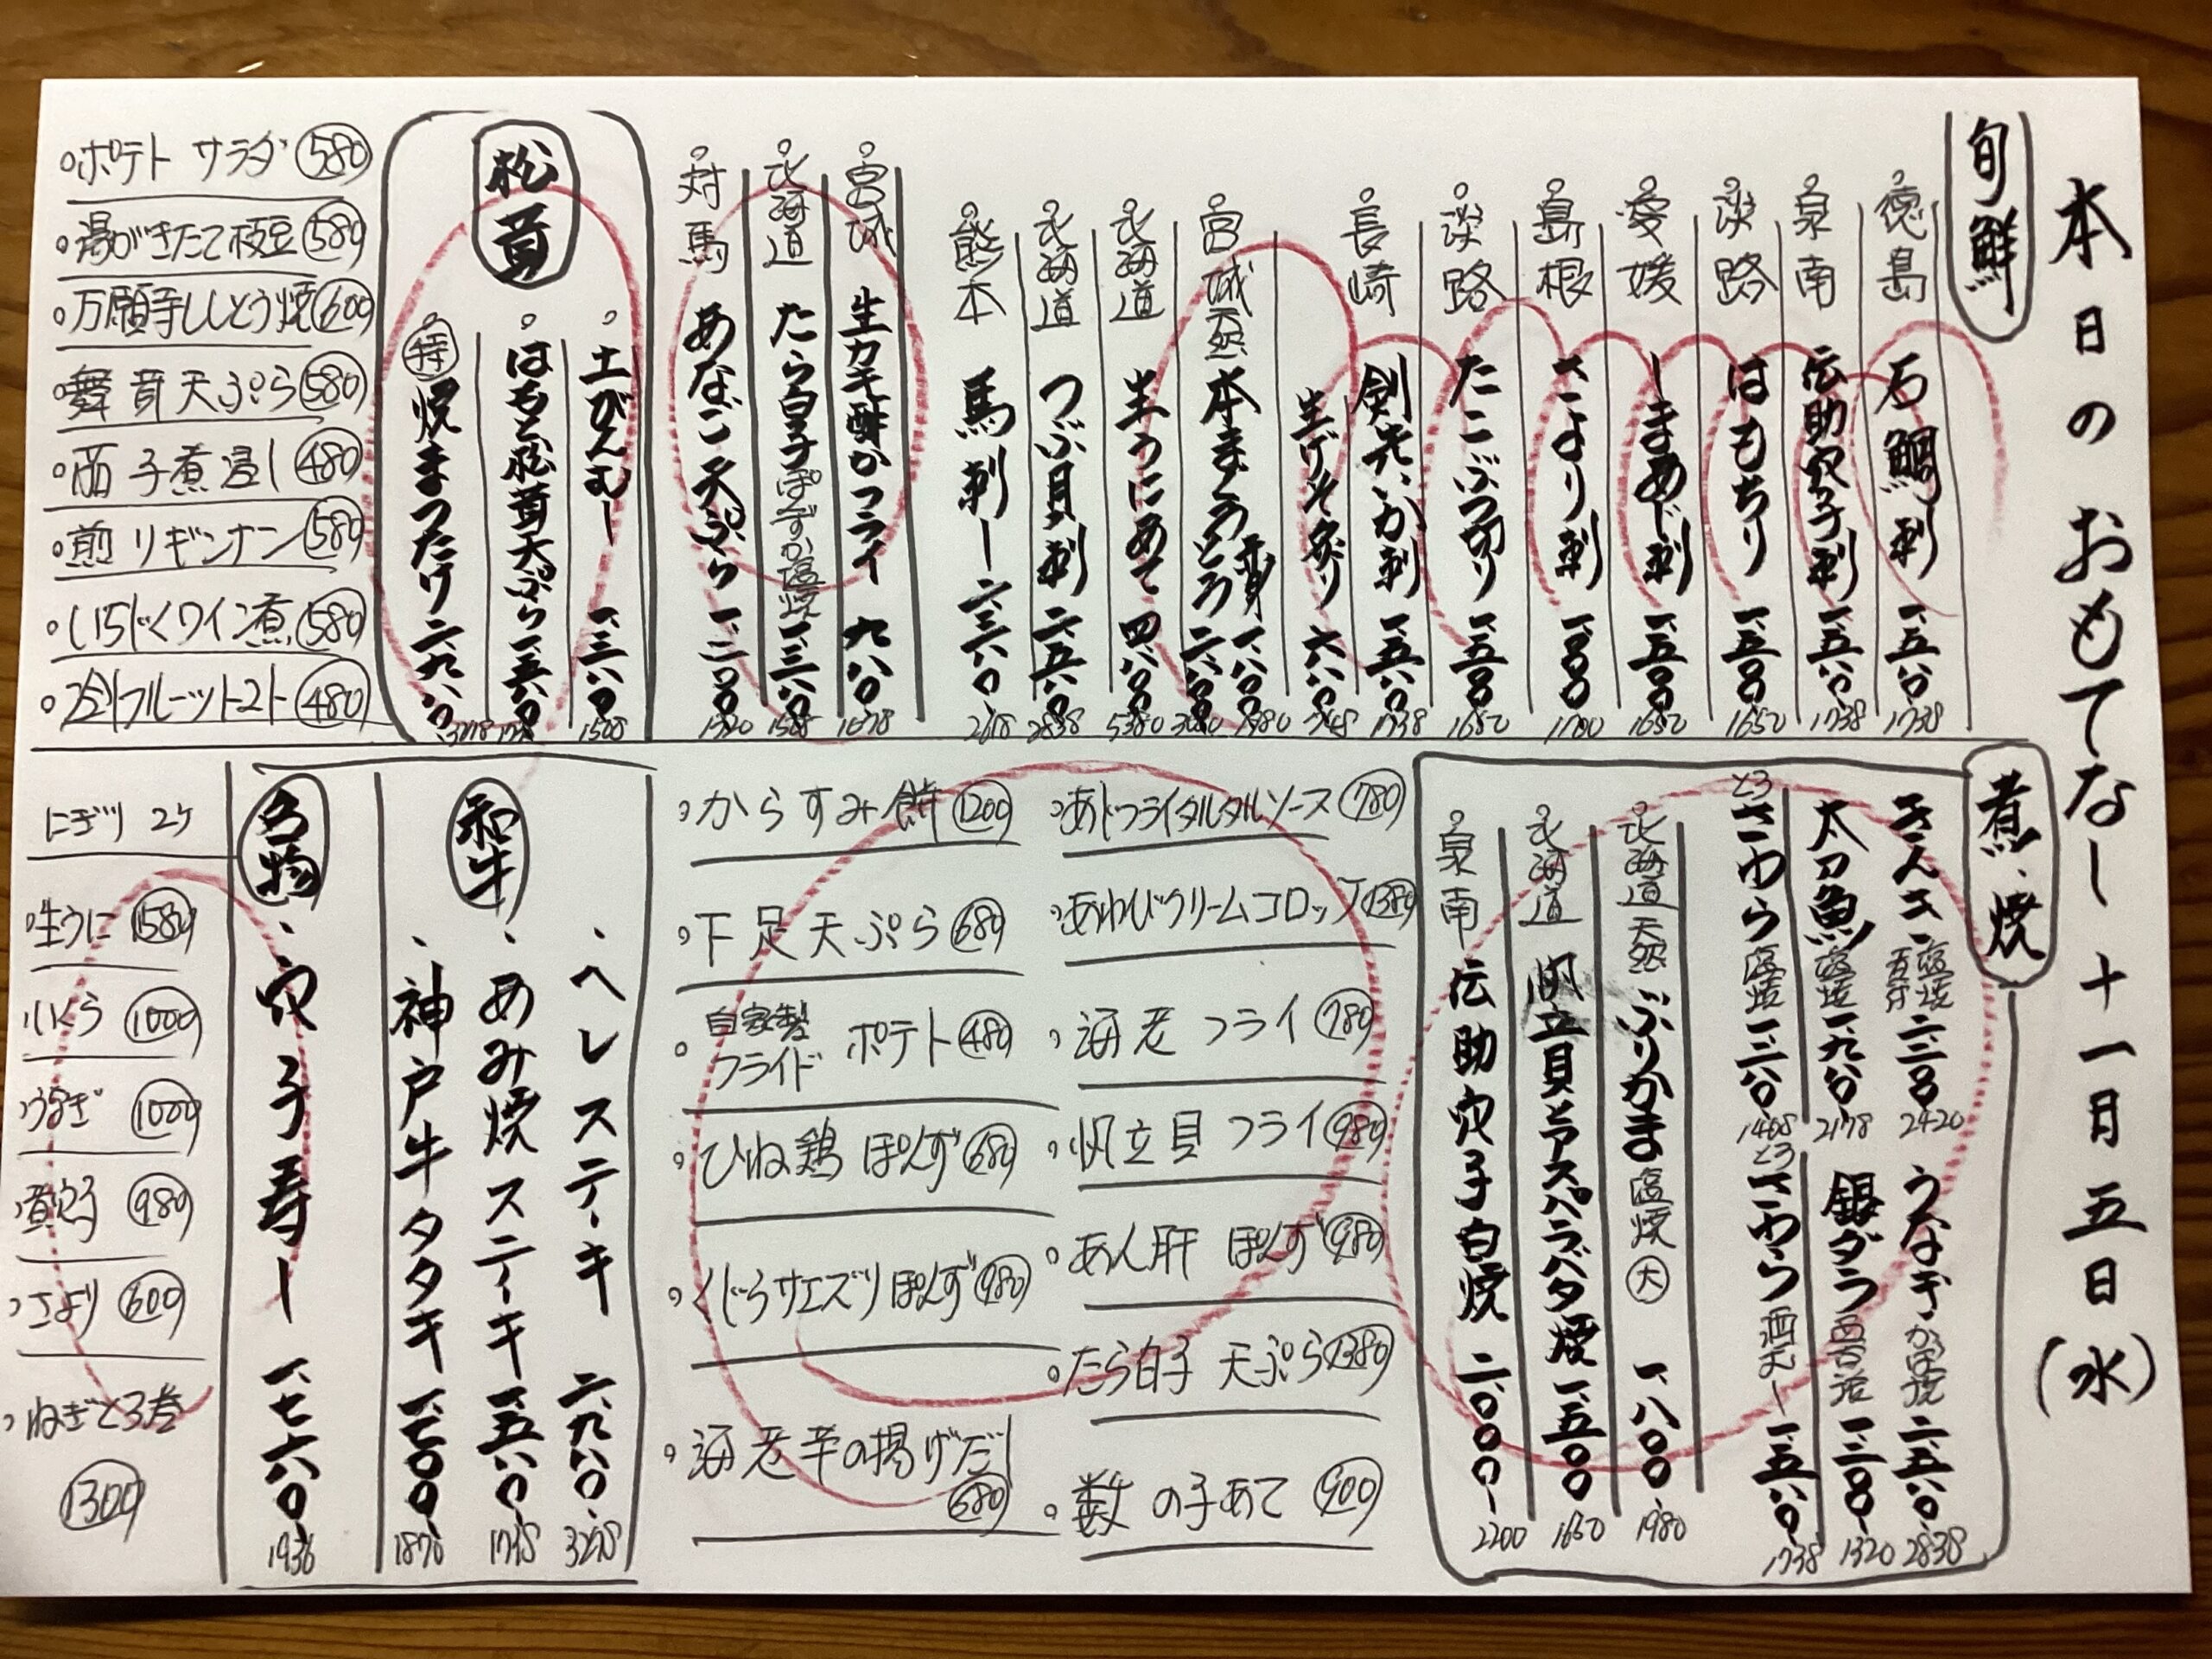 本日のおもてなし 十一月五日(水)
旬鮮
徳島 石鯛刺 一、五八〇 1738
泉南 伝助穴子刺 一、五八〇 1738
淡路 はもちり 一、五〇〇 1650
愛媛 しまあじ刺 一、五〇〇 1650
島根 さより刺 一、〇〇〇 1100
淡路 たこぶつ切り 一、五〇〇 1650
長崎 剣先いか刺 一、五八〇 1738
生げそ炙り 六八〇 748
宮城 天然 本まぐろ
赤身 一、八〇〇 1980
とろ 二、八〇〇 3080
北海道 生うにあて 四、八〇〇 5380
北海道 つぶ貝刺 二、五八〇 2838
熊本 馬刺し 二、三八〇 2618
宮城 生カキ酢かフライ 九八〇 1078
北海道 たら白子 ぽんずか塩焼 一、三八〇 1508
対馬 あなご天ぷら 一、二〇〇 1320
松茸
土びんむし 一、三八〇 1508
はもと松茸天ぷら 一、五八〇 1738
特 焼まつたけ 二、九八〇 3278
ポテトサラダ 580
湯がきたて枝豆 580
万願寺ししとう焼 600
舞茸天ぷら 580
茄子煮浸し 480
煎りギンナン 580
いちじくワイン煮 580
冷しフルーツトマト 480
煮・焼
きんき 塩焼 煮付 二、二〇〇 2420
太刀魚 塩焼 一、九八〇 2178
とろさわら 塩焼 一、二八〇 1408
うなぎ かば焼 二、五八〇 2838
銀ダラ 西京漬 一、二〇〇 1320
とろさわら 酒むし 一、五八〇 1738
北海道 天然 ぶりかま 塩焼 大 一、八〇〇 1980
北海道 帆立貝とアスパラバタ焼 一、五〇〇 1650
泉南 伝助穴子白焼 二、〇〇〇 2200
あじフライタルタルソース 780
あわびクリームコロッケ 1380
海老フライ 780
帆立貝フライ 980
あん肝ぽんず 980
たら白子天ぷら 1380
数の子あて 900
からすみ餅 1200
下足天ぷら 680
自家製フライドポテト 480
ひね鶏ぽんず 680
くじらサエズリぽんず 980
海老芋の揚げだし 680
和牛
ヘレステーキ 二、九八〇 3278
あみ焼ステーキ 一、五八〇 1738
神戸牛タタキ 一、七〇〇 1870
名物
穴子寿し 一、七六〇 1936
にぎり 2ケ
生うに 1580
いくら 1000
うなぎ 1000
煮穴子 980
さより 600
ねぎとろ巻 1300